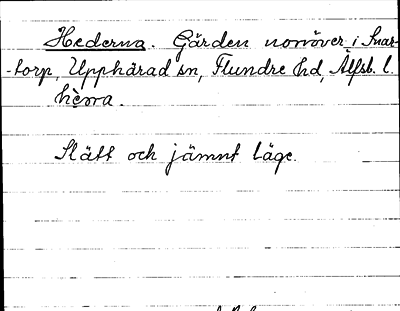 Hederna. Gärden norröver i Snar-
-torp, Upphärad sn, Flundre hd, Älfsb. l.
hèɷra.
Slätt och jämnt läge.